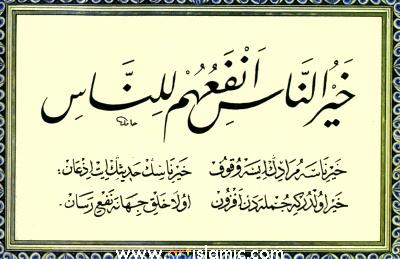 خَيْرُ النَّاسِ اَنْفَعُهُمْ لِلنَّاسِ
خير ناسه مرادك ايسه وقوف خير ناسك حديثك ايت اذعان:
خير اولدركه جمله دن افزون اولا خلق جهانه نفع رسان.
islamic.com